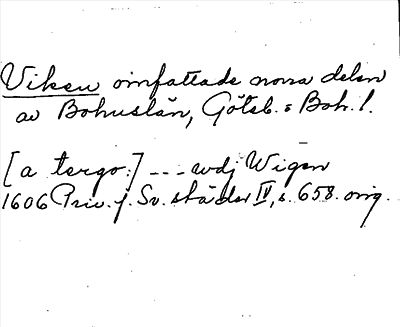 Viken omfattade norra delen
av Bohuslän, Göteb. o Boh. l.
[a tergo:] --- udj Wigen
1606 Priv. f. Sv. städer IV, s. 658. orig.